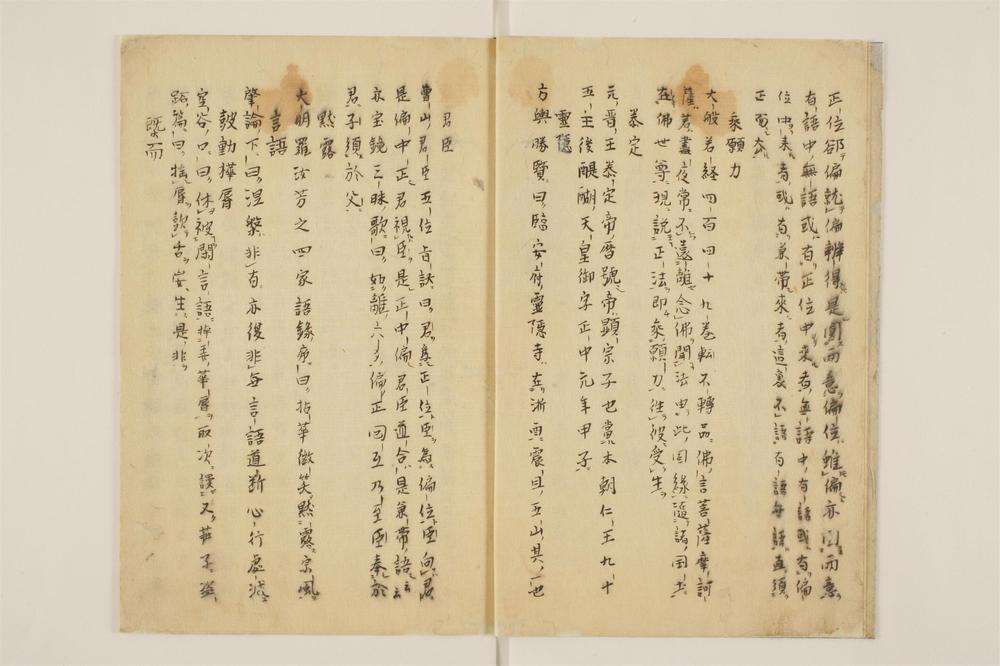 正位却偏就偏辨得是圓兩意偏位雖偏亦圓兩意
有語中無語或有正位中來者無語中有語或有偏
位中來者或有兼帶來者這裏不語有語無語直須
正面去
乘願力
大般若経四百四十九巻転不轉品佛言菩薩摩訶
薩若晝夜常不遠離念佛聞法由此因縁隨諸国土
在佛世尊現説正法即乘願力往彼受生
泰定
元晋王泰定帝曆號帝顕宗子也當本朝仁王九十
五主後醍醐天皇御宇正中元年甲子
靈隠
方輿勝覽曰臨安府靈隠寺在浙西震旦五山其一也
君臣
曹山君臣五位旨訣曰君為正位臣為偏位臣向君
是偏中正君視臣是正中偏君臣道合是兼帶語云云
亦宝鏡三昧歌曰如離六爻偏正回互乃至臣奉於
君子須於父
黙露
大明羅汝芳之四家語錄序曰拈華微笑黙露宗風
言語
肇論下曰涅槃非有亦復非無言語道断心行處滅
皷動擗脣
室谷口曰休被閑言語華脣取次謾又莊子盗
跖篇曰揺脣皷舌安生是非
既而